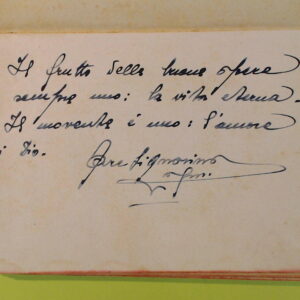 Il frutto delle buone opere
sempre uno: la vita eterna.
Il movente è uno: l'amore
i Dio.